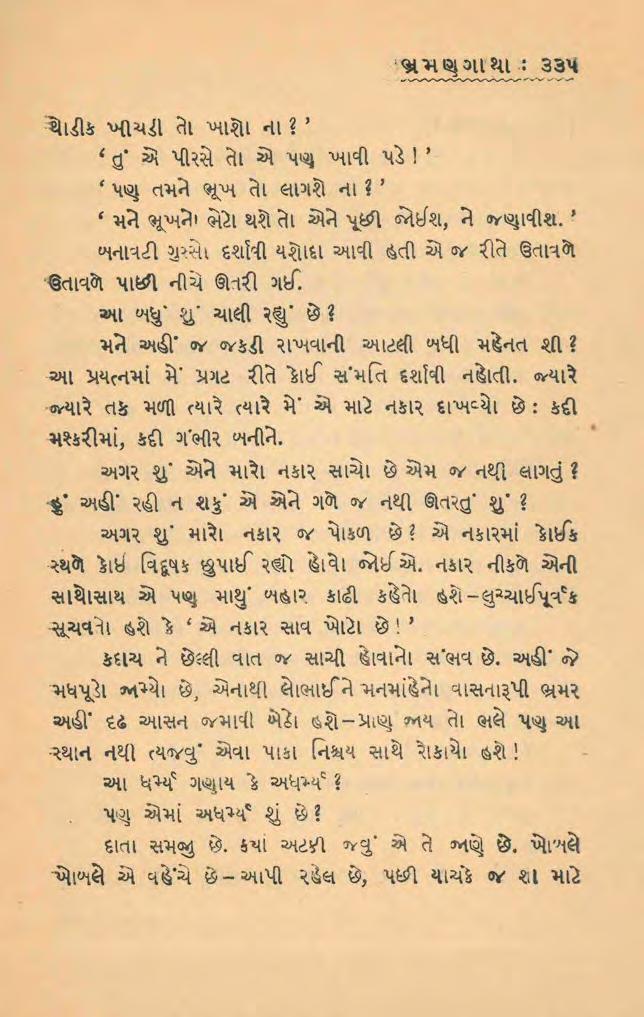 ભ્રમણગાથા : ૩૩૫
થોડીક ખીચડી તો ખાશો ના ? ’
‘ તું એ પીરસે તો એ પણ ખાવી પડે ! ’
‘ પણ તમને ભૂખ તો લાગશે ના ? ’
‘ મને ભૂખનો ભેટો થશે તો એને પૂછી જોઈશ, ને જણાવીશ. ’
બનાવટી ગુસ્સો દર્શાવી યશોદા આવી હતી એ જ રીતે ઉતાવળે
ઉતાવળે પાછી નીચે ઊતરી ગઈ.
આ બધું શું ચાલી રહ્યું છે ?
મને અહીં જ જકડી રાખવાની આટલી બધી મહેનત શી ?
આ પ્રયત્નમાં મેં પ્રગટ રીતે કોઈ સંમતિ દર્શાવી નહોતી. જ્યારે
જ્યારે તક મળી ત્યારે ત્યારે મેં એ માટે નકાર દાખવ્યો છે : કદી
મશ્કરીમાં, કદી ગંભીર બનીને.
અગર શું એને મારો નકાર સાચો છે એમ જ નથી લાગતું ?
હું અહીં રહી ન શકું એ એને ગળે જ નથી ઊતરતું શું ?
અગર શું મારો નકાર જ પોકળ છે ? એ નકારમાં કોઈક
સ્થળે કોઈ વિદૂષક છુપાઈ રહ્યો હોવો જોઈએ. નકાર નીકળે એની
સાથોસાથ એ પણ માથું બહાર કાઢી કહેતો હશે – લુચ્ચાઈપૂર્વક
સૂચવતો હશે કે ‘ એ નકાર સાવ ખોટો છે ! ’
કદાચ ને છેલ્લી વાત જ સાચી હોવાનો સંભવ છે. અહીં જે
મધપૂડો જામ્યો છે, એનાથી લોભાઈને મનમાંહેનો વાસનારૂપી ભ્રમર
અહીં દૃઢ આસન જમાવી બેઠો હશે – પ્રાણ જાય તો ભલે પણ આ
સ્થાન નથી ત્યજવું એવા પાકા નિશ્ચય સાથે રોકાયો હશે !
આ ધર્મ્ય ગણાય કે અધર્મ્ય ?
પણ એમાં અધર્મ્ય શું છે ?
દાતા સમજુ છે. ક્યાં અટકી જવું એ તે જાણે છે. ખોબલે
ખોબલે એ વહેંચે છે – આપી રહેલ છે, પછી યાચકે જ શા માટે